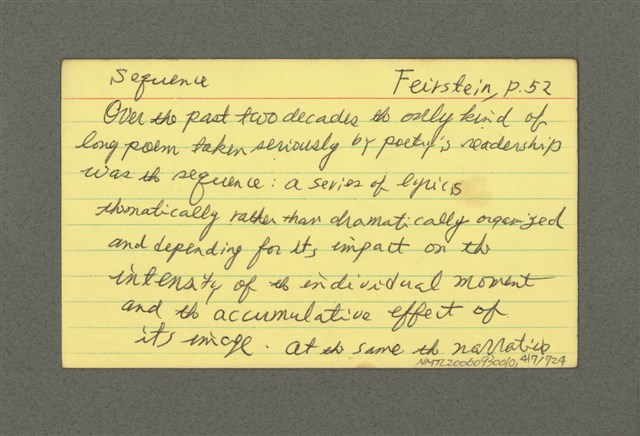 Sequence Feirstein, p.52
Over the past two decades th only kind of
long poem taken seriously by poetry's readership
was th sequence: a series of lyrics
thematically rather than dramatically organized
and depending for its impact on th
intensity of th individual moment
and th accumulative effect of
its image. At th same th narrative
NMTL20060930010, 417/724